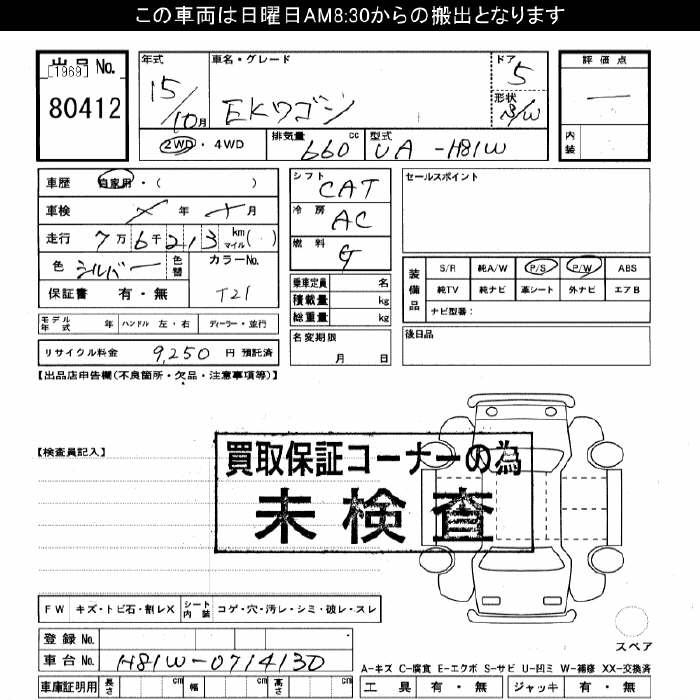 この車両は日曜日AM8:30からの搬出となります
出品 No.
[1969]
80412
年式
15/10月
車名・グレード
EKワゴン
ドア
5
形状
S/W
評価点
—
内装
2WD・4WD
排気量 660 cc
型式 UA-H81W
車歴 自家用・( )
車検 年 月
走行 7万6千213 km マイル( )
色 シルバー 色替
カラーNo.
T21
保証書 有・無
シフト CAT
冷房 AC
燃料 G
乗車定員 名
積載量 kg
総重量 kg
セールスポイント
装備品
S/R 純A/W P/S P/W ABS
純TV 純ナビ 革シート 外ナビ エアB
ナビ型番:
モデル年式 年 ハンドル 左・右 ディーラー・並行
名変期限
月 日
後日品
リサイクル料金 9,250 円 預託済
【出品店申告欄(不良箇所・欠品・注意事項等)】
【検査員記入】
買取保証コーナーの為
未検査
FW キズ・トビ石・割レX シート内装 コゲ・穴・汚レ・シミ・破レ・スレ
スペア
登録 No.
車台 No. H81W-0714130
A-キズ C-腐食 E-エクボ S-サビ U-凹ミ W-補修 XX-交換済
車庫証明用 長さ cm 幅 cm 高さ cm
工具 有・無 ジャッキ 有・無